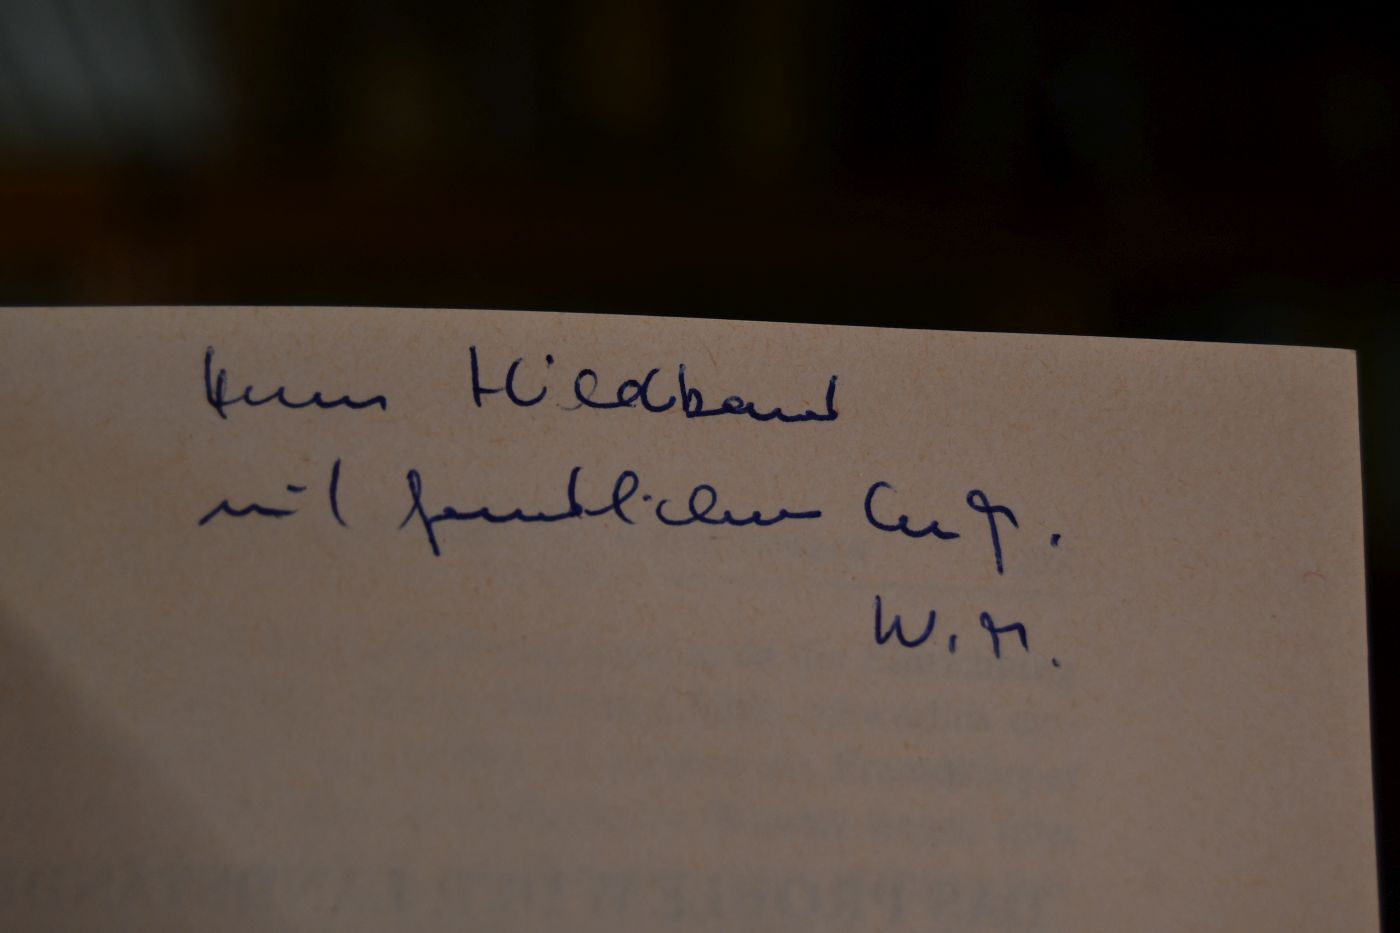 Herrn Hildband
mit freundlichem Gruß.
W. M.